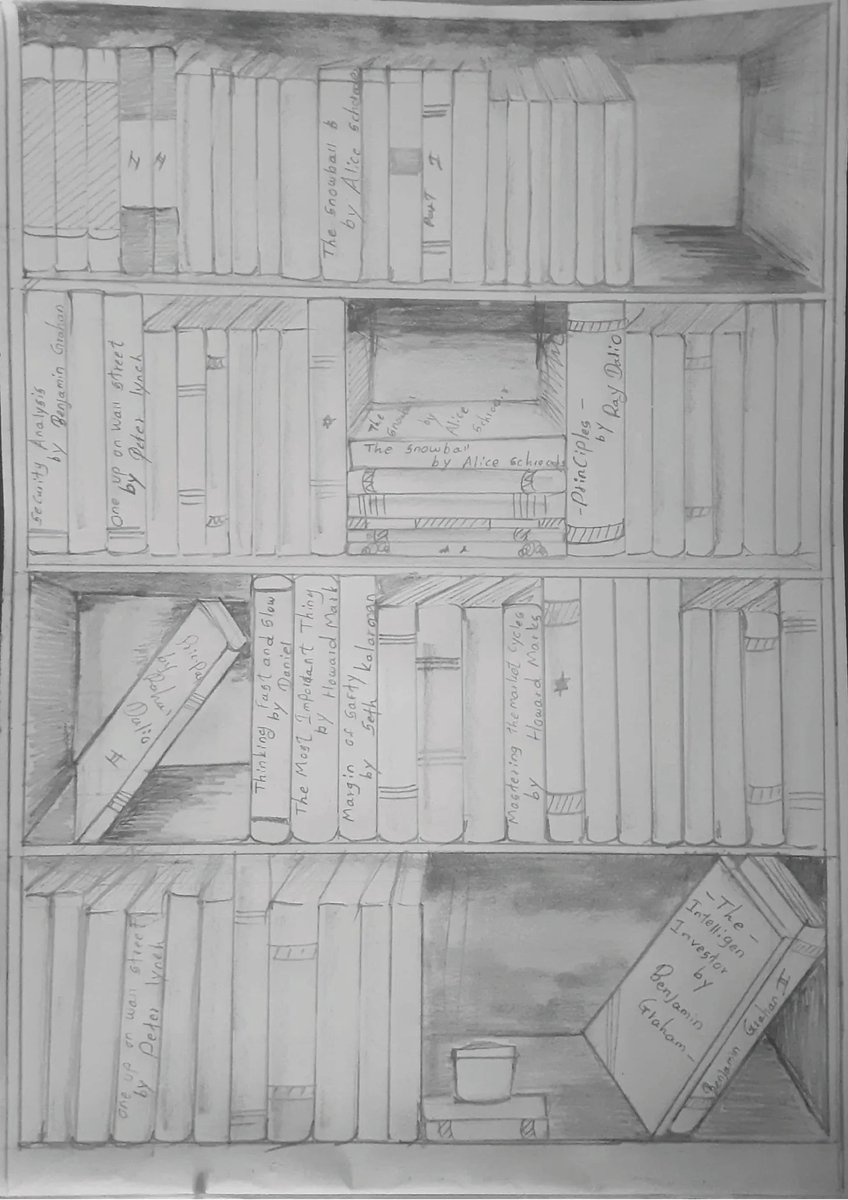 I
II
The Snowball b
by Alice Schroede
Part I
Security Analysis
by Benjamin Grahan
One up on wall street
by Peter lynch
The
Snowbal
by
Alice
Schroeder
The Snowball
by Alice Schroeds
-Principles-
by Ray Dalio
II
Thinking Fast and Slow
by Daniel
The Most Impordant Thing
by Howard Mark
Margin of Safty
by Seth Kalarman
Mastering the market Cycles
by Howard Marks
One up on wall street
by Peter lynch
-The-
Intelligen
Investor
by
Benjamin
Graham-
Benjamin Grahan II